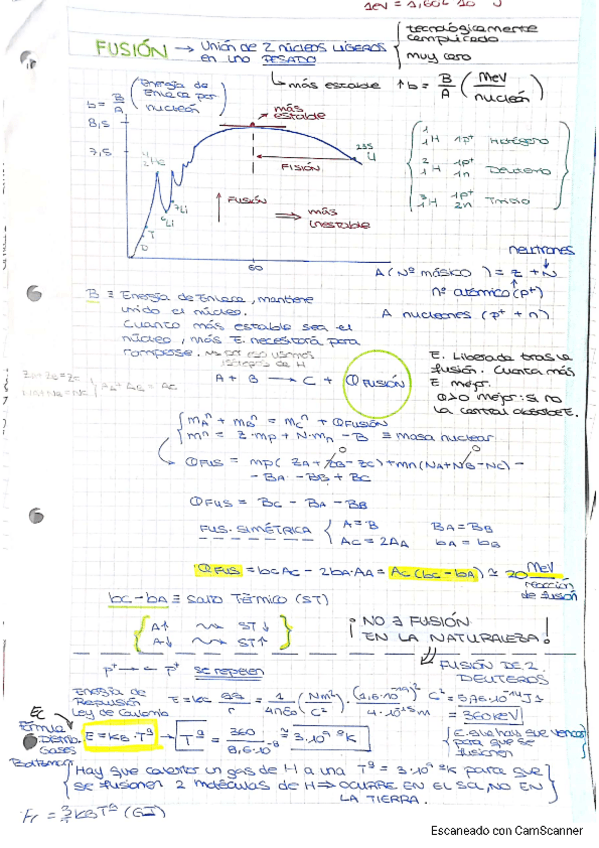 1eV = 1,602 · 10
FUSIÓN → Unión de 2 núcleos ligeros en uno PESADO
tecnológicamente complicado
muy caro
más estable ↑ b = B/A (MeV/nucleón)
b = B/A (Energía de Enlace por nucleón)
8,5
7,5
más estable
235 U
FISIÓN
4 2 He
7 Li
6 Li
T
D
FUSIÓN
más inestable
60
1 1 H 1p+ Hidrógeno
2 1 H 1p+ 1n Deuterio
3 1 H 1p+ 2n Tritio
neutrones
A (Nº másico) = Z + N
nº atómico (p+)
A nucleones (p+ + n)
B ≡ Energía de Enlace, mantiene
unido el núcleo.
Cuanto más estable sea el
núcleo, más E. necesitará para
romperse. por eso usamos isótopos de H
A + B → C + Q FUSIÓN
E. Liberada tras la
fusión. Cuanta más
E mejor.
Q>0 mejor. si no
la central absorbe E.
mAⁿ + mBⁿ = mCⁿ + Qfusión
mⁿ = Z·mp + N·mn - B ≡ masa nuclear
QFUS = mp(ZA + ZB - ZC) + mn(NA + NB - NC) -
0
0
- BA - BB + BC
QFUS = BC - BA - BB
FUS. SIMÉTRICA
A = B BA = BB
AC = 2AA bA = bB
QFUS = bC AC - 2bA·AA = AC (bC - bA) ≃ 20 MeV/reacción de fusión
bC - bA ≡ Salto Térmico (ST)
A↑ ⇝ ST↓
A↓ ⇝ ST↑
¡NO ∃ FUSIÓN
EN LA NATURALEZA!
p+ → ← p+ se repelen
FUSIÓN DE 2
DEUTEROS
Energía de
Repulsión
Ley de Coulomb
= 1/4πε0 (Nm²/C²) · (1,6·10⁻¹⁹)²/4·10⁻¹⁵ m C² = 5,76·10⁻¹⁴ J
= 360 keV
Ec
Térmica
Distrib.
Gases
Boltzmann
E = KB·Tª → Tª = 360/8,6·10⁻⁸ ≃ 3·10⁹ ºK
E. que hay que vencer
para que se
fusionen
Hay que calentar un gas de H a una Tª = 3·10⁹ ºK para que
se fusionen 2 moléculas de H ⇒ OCURRE EN EL SOL, NO EN
LA TIERRA.
KB Tª (GI)
Escaneado con CamScanner